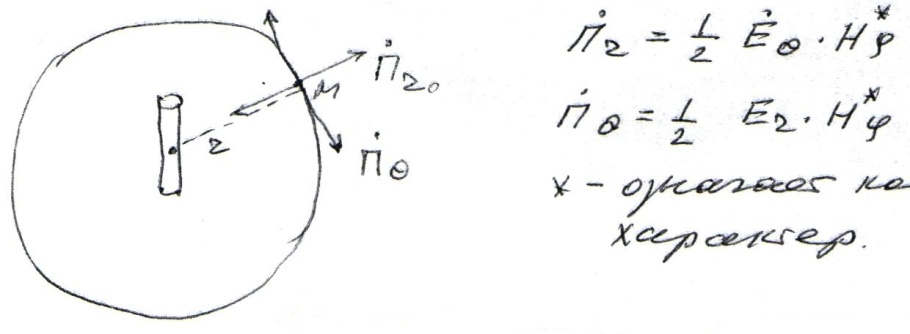 Π̇r₀
M
r
Π̇θ
Π̇r = 1/2 Ėθ · H*φ
Π̇θ = 1/2 Er · H*φ
* – означает ко
характер.